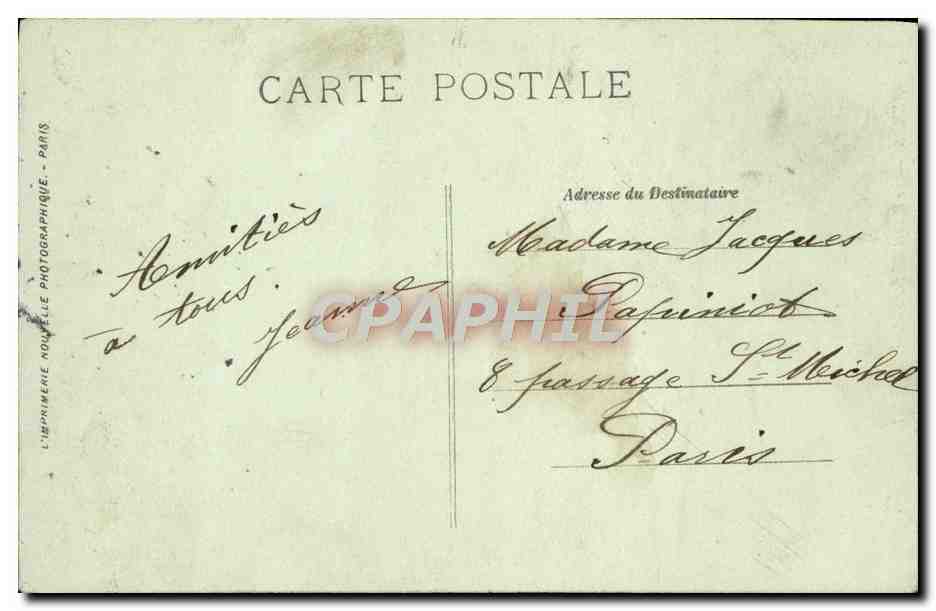 CARTE POSTALE
L'IMPRIMERIE NOUVELLE PHOTOGRAPHIQUE. - PARIS
Amitiés
à tous.
Jeanne
CPAPHIL
Adresse du Destinataire
Madame Jacques
Papiniot
8 passage St Michel
Paris